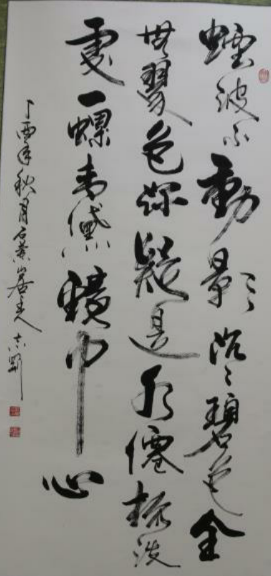 煙波不動影沉〻碧色全
無翠色深疑是水僊梳洗
處一螺青黛鏡中心
丁酉年秋月